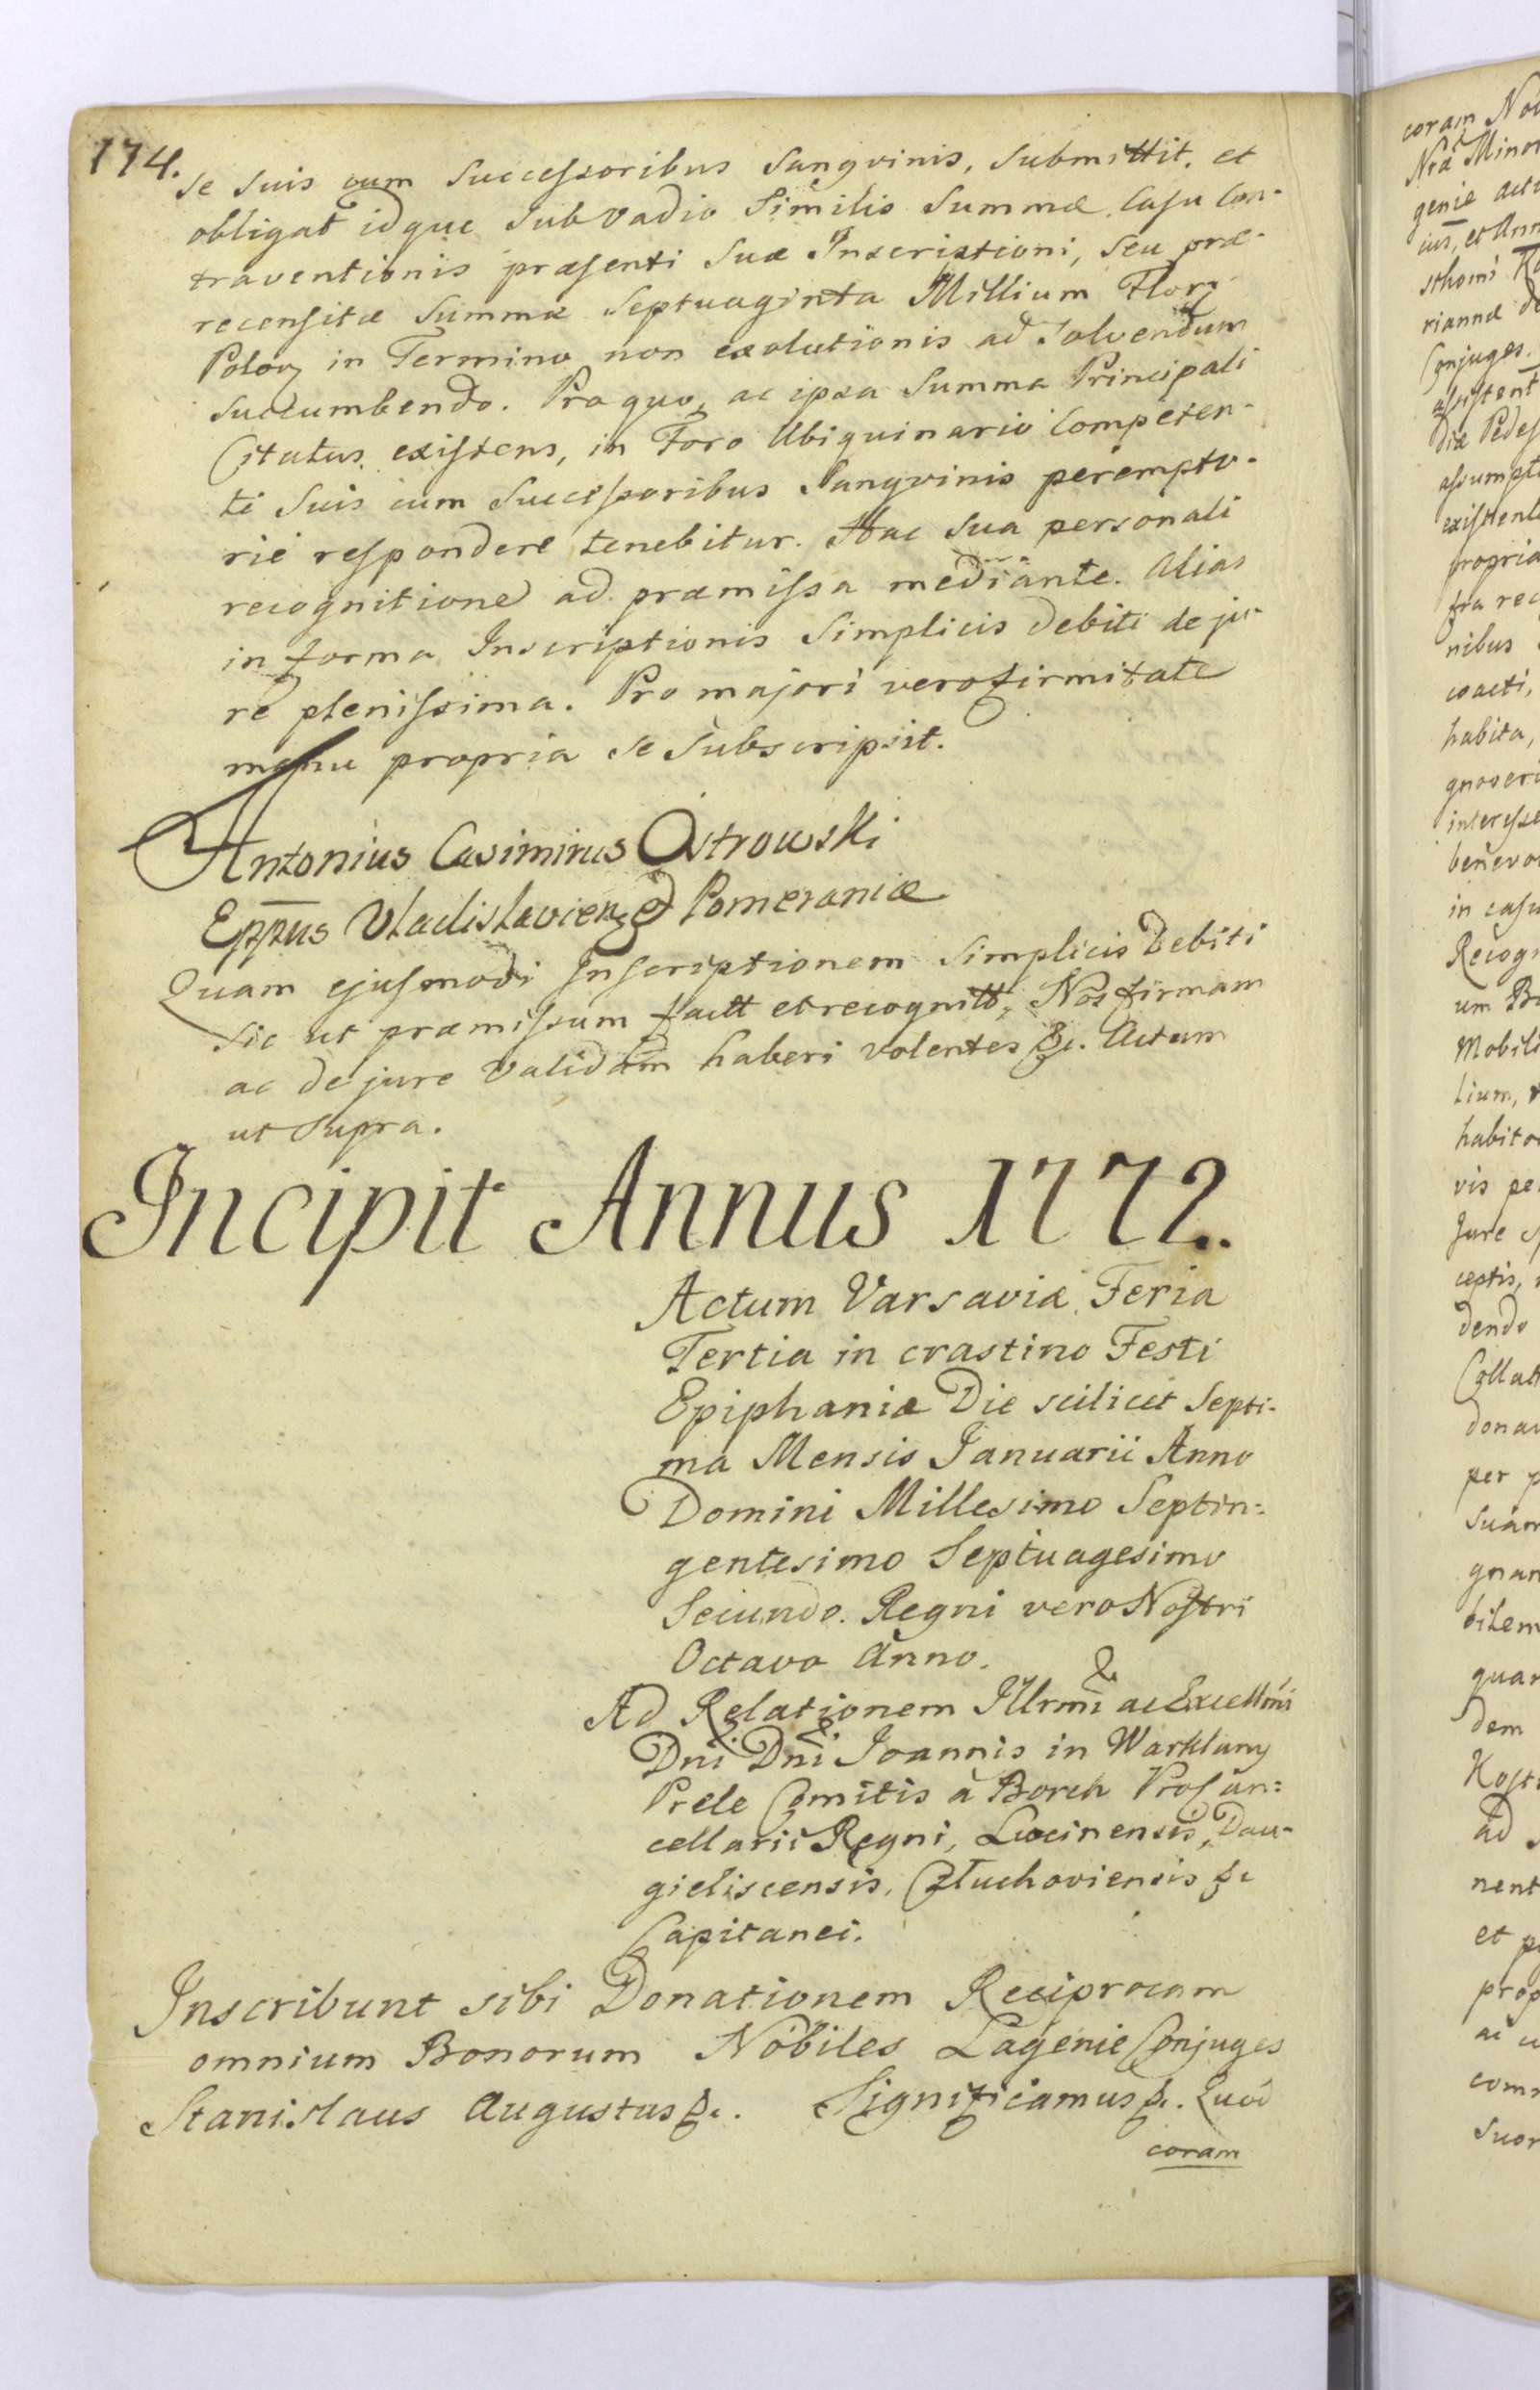 174.
se suis cum Successoribus Sangvinis, submittit, et
obligat idque sub vadio Similis Summæ, Casu Con-
traventionis præsenti suæ Inscriptioni, seu præ-
recensitæ Summæ Septuaginta Millium Flor
Polon in Termino non exolutionis ad Solvendum
succumbendo. Pro quo, ac ipsa Summa Principali
Citatus existens, in Foro Ubiquinario Competen-
ti suis cum Successoribus Sangvinis perempto-
rié respondere tenebitur. Hac sua personali
recognitione ad præmissa mediante. Alias
in forma Inscriptionis Simplicis Debiti de ju-
re plenissima. Pro majori vero firmitate
manu propria se Subscripsit.
Antonius Casimirus Ostrowski
Eppus Vladislavien et Pomeraniæ
Quam ejusmodi Inscriptionem Simplicis Debiti
sic ut præmissum factt et recognitt, Nos firmam
ac de jure Validam haberi volentes &c. Actum
ut Supra.
Incipit Annus 1772.
Actum Varsaviæ Feria
Tertia in crastino Festi
Epiphaniæ Die scilicet Septi-
ma Mensis Januarii Anno
Domini Millesimo Septin:
gentesimo Septuagesimo
Secundo. Regni vero Nostri
Octavo Anno.
Ad Relationem Illrmi & ac Excellmi
Dni Dni Joannis in Warklany
Prele Comitis à Borch Procan:
cellarii Regni, Lucinensis, Dau-
gieliscensis, Człuchoviensis &c
Capitanei.
Inscribunt sibi Donationem Reciprocam
omnium Bonorum Nobiles Lagenie Conjuges
Stanislaus Augustus &c. Significamus &c. Quod
coram
coram
Minor
genie
Conjuges
propria
nibus
coacti,
habita,
in casu
habito
dendo
per
dem
ad
et